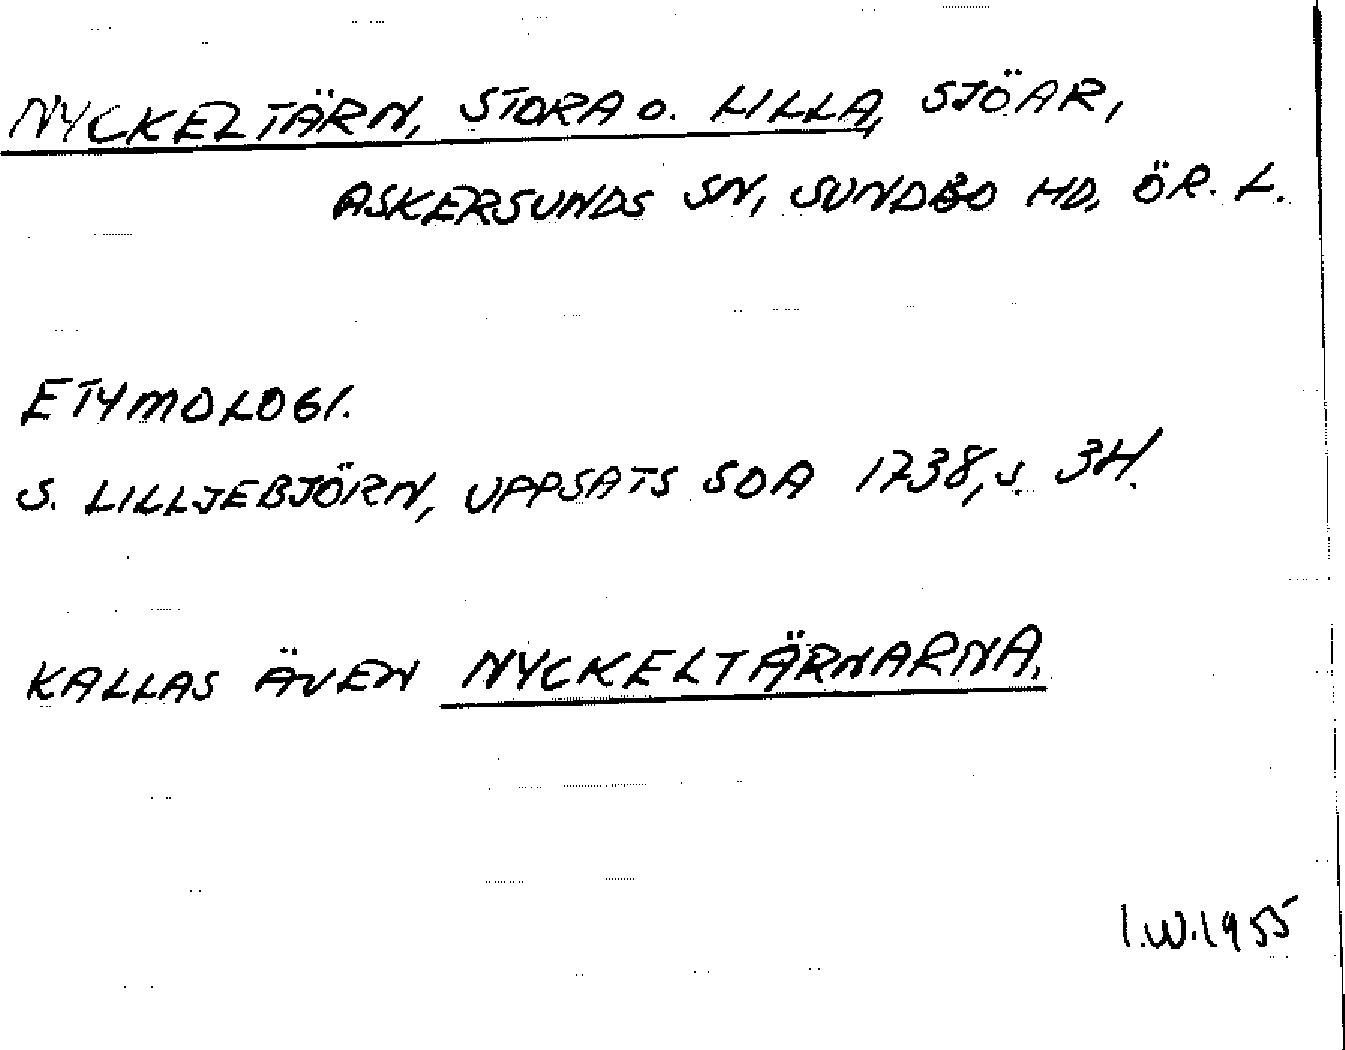 NYCKELTÄRN, STORA o. LILLA, SJÖAR,
ASKERSUNDS SN, SUNDBO HD, ÖR. L.
ETYMOLOGI.
S. LILLJEBJÖRN, UPPSATS SOA 1738, s. 34.
KALLAS ÄVEN NYCKELTÄRNARNA.
I.W.1955